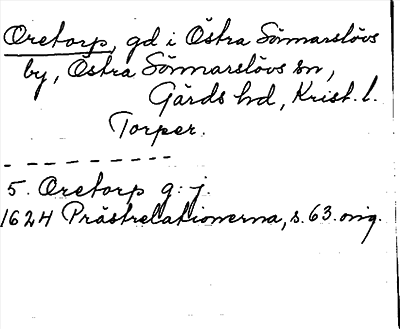 Oretorp, gd i Östra Sönnarslövs
by, Östra Sönnarslövs sn,
Gärds hd, Krist. l.
Torper.
5. Oretorp g: j.
1624 Prästrelationerna, s. 63. orig.